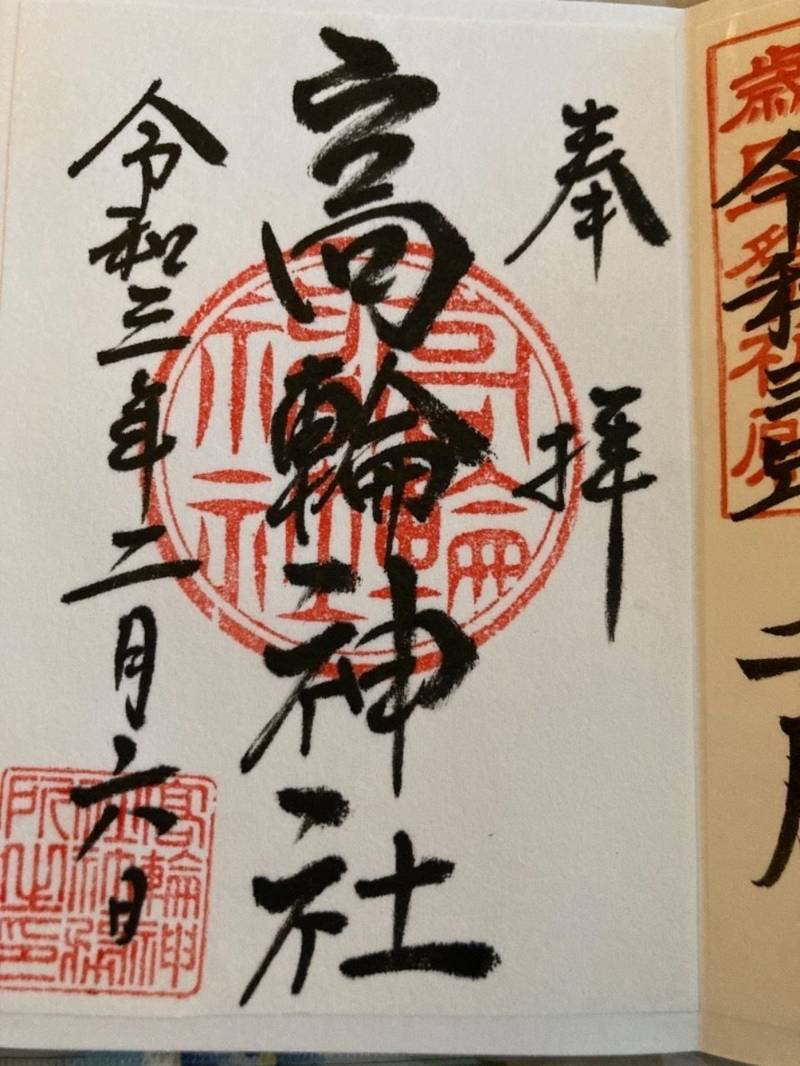 奉拝
高輪神社
令和三年二月六日
高輪
神社
高輪神
社社務
所之印